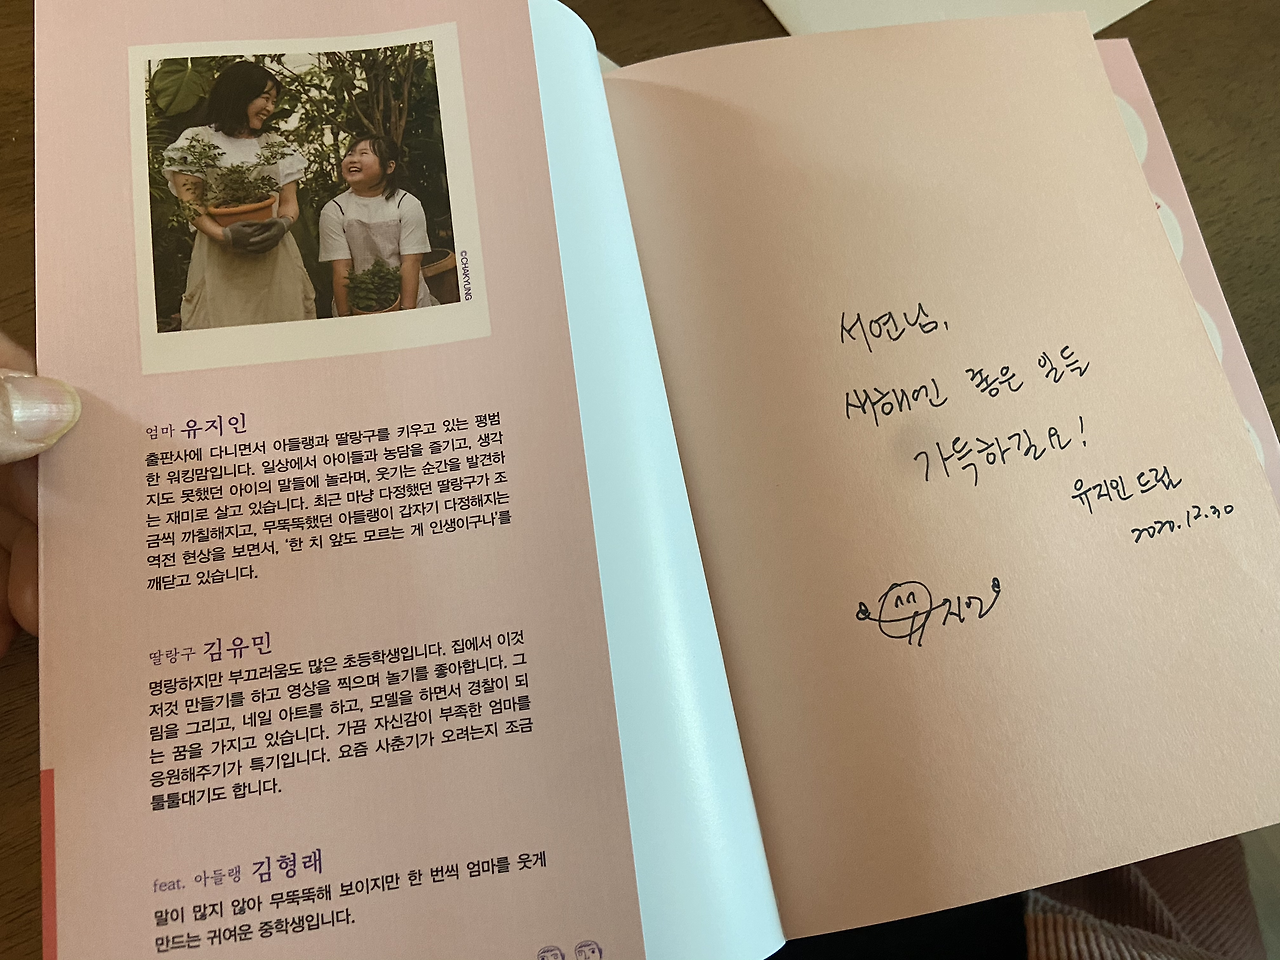 ©CHAKYUNG
엄마 유지인
출판사에 다니면서 아들랭과 딸랑구를 키우고 있는 평범
한 워킹맘입니다. 일상에서 아이들과 농담을 즐기고, 생각
지도 못했던 아이의 말들에 놀라며, 웃기는 순간을 발견하
는 재미로 살고 있습니다. 최근 마냥 다정했던 딸랑구가 조
금씩 까칠해지고, 무뚝뚝했던 아들랭이 갑자기 다정해지는
역전 현상을 보면서, ‘한 치 앞도 모르는 게 인생이구나’를
깨닫고 있습니다.
딸랑구 김유민
명랑하지만 부끄러움도 많은 초등학생입니다. 집에서 이것
저것 만들기를 하고 영상을 찍으며 놀기를 좋아합니다. 그
림을 그리고, 네일 아트를 하고, 모델을 하면서 경찰이 되
는 꿈을 가지고 있습니다. 가끔 자신감이 부족한 엄마를
응원해주기가 특기입니다. 요즘 사춘기가 오려는지 조금
툴툴대기도 합니다.
feat. 아들랭 김형래
말이 많지 않아 무뚝뚝해 보이지만 한 번씩 엄마를 웃게
만드는 귀여운 중학생입니다.
서연님,
새해엔 좋은 일들
가득하길요!
유지인 드림
2020.12.30
지인